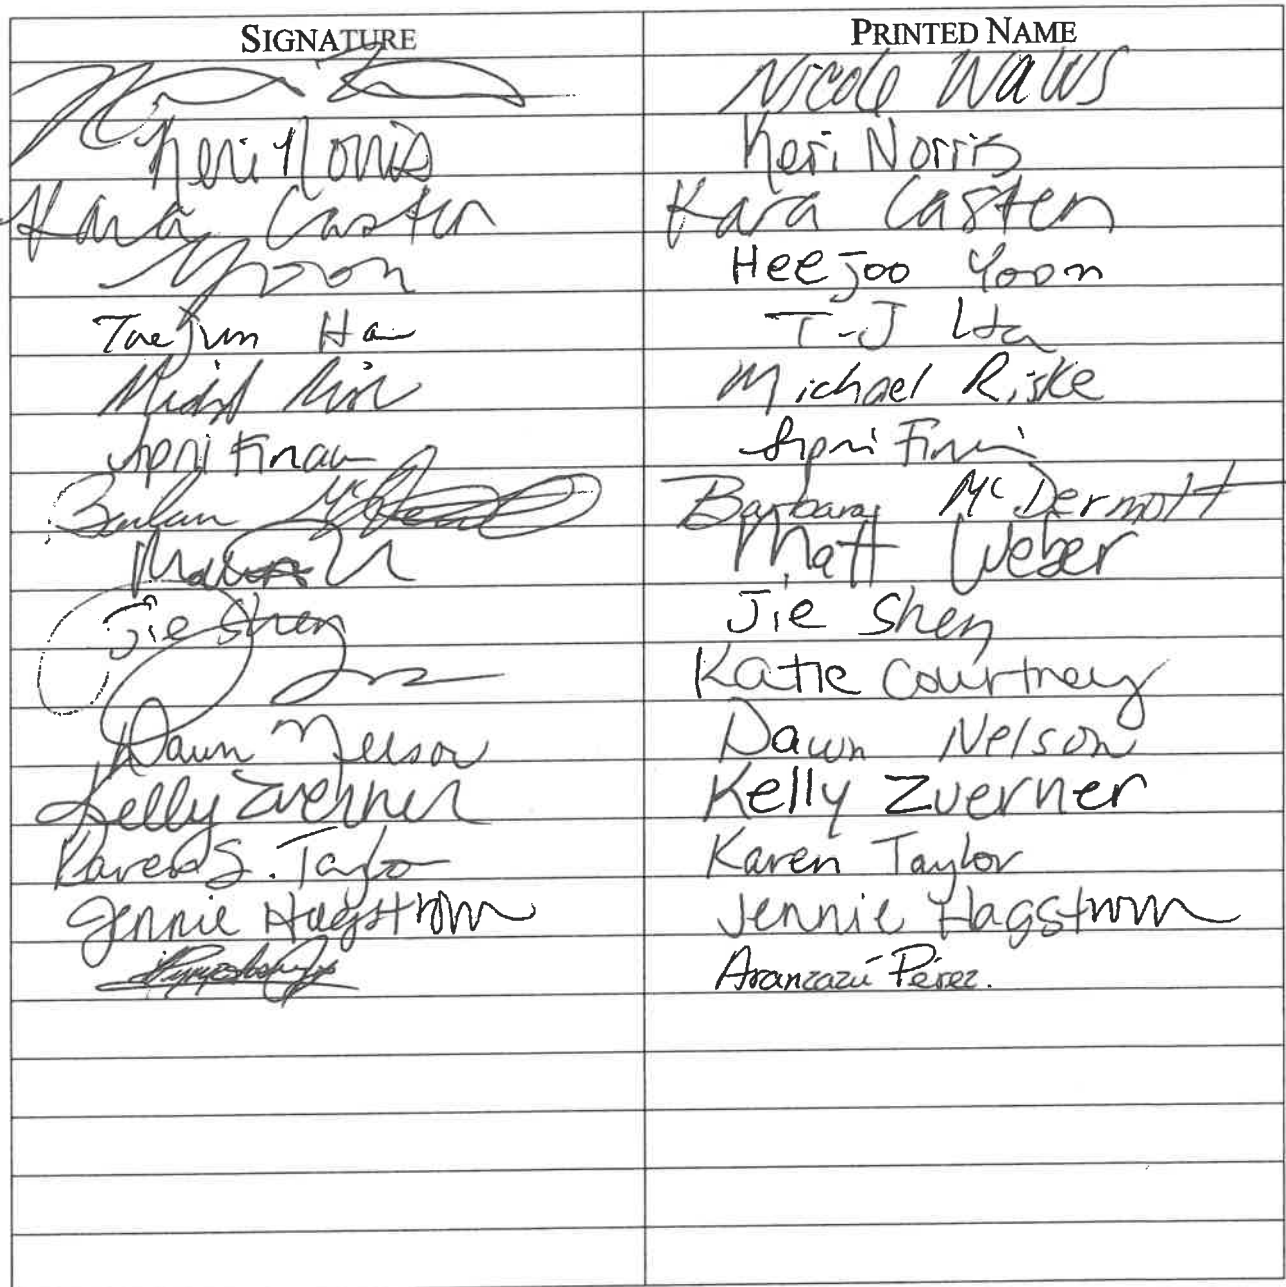 SIGNATURE PRINTED NAME
Nicole Walls
Keri Norris Keri Norris
Kara Casten Kara Casten
Yoon HeeJoo Yoon
TaeJun Ha T-J Ha
Michael Riske
Barbara McDermott
Matt Weber
Jie Shen Jie Shen
Katie Courtney
Dawn Nelson Dawn Nelson
Kelly Zuerner Kelly Zuerner
Karen S. Taylor Karen Taylor
Jennie Hagstrom Jennie Hagstrom
Aranzazú Pérez.